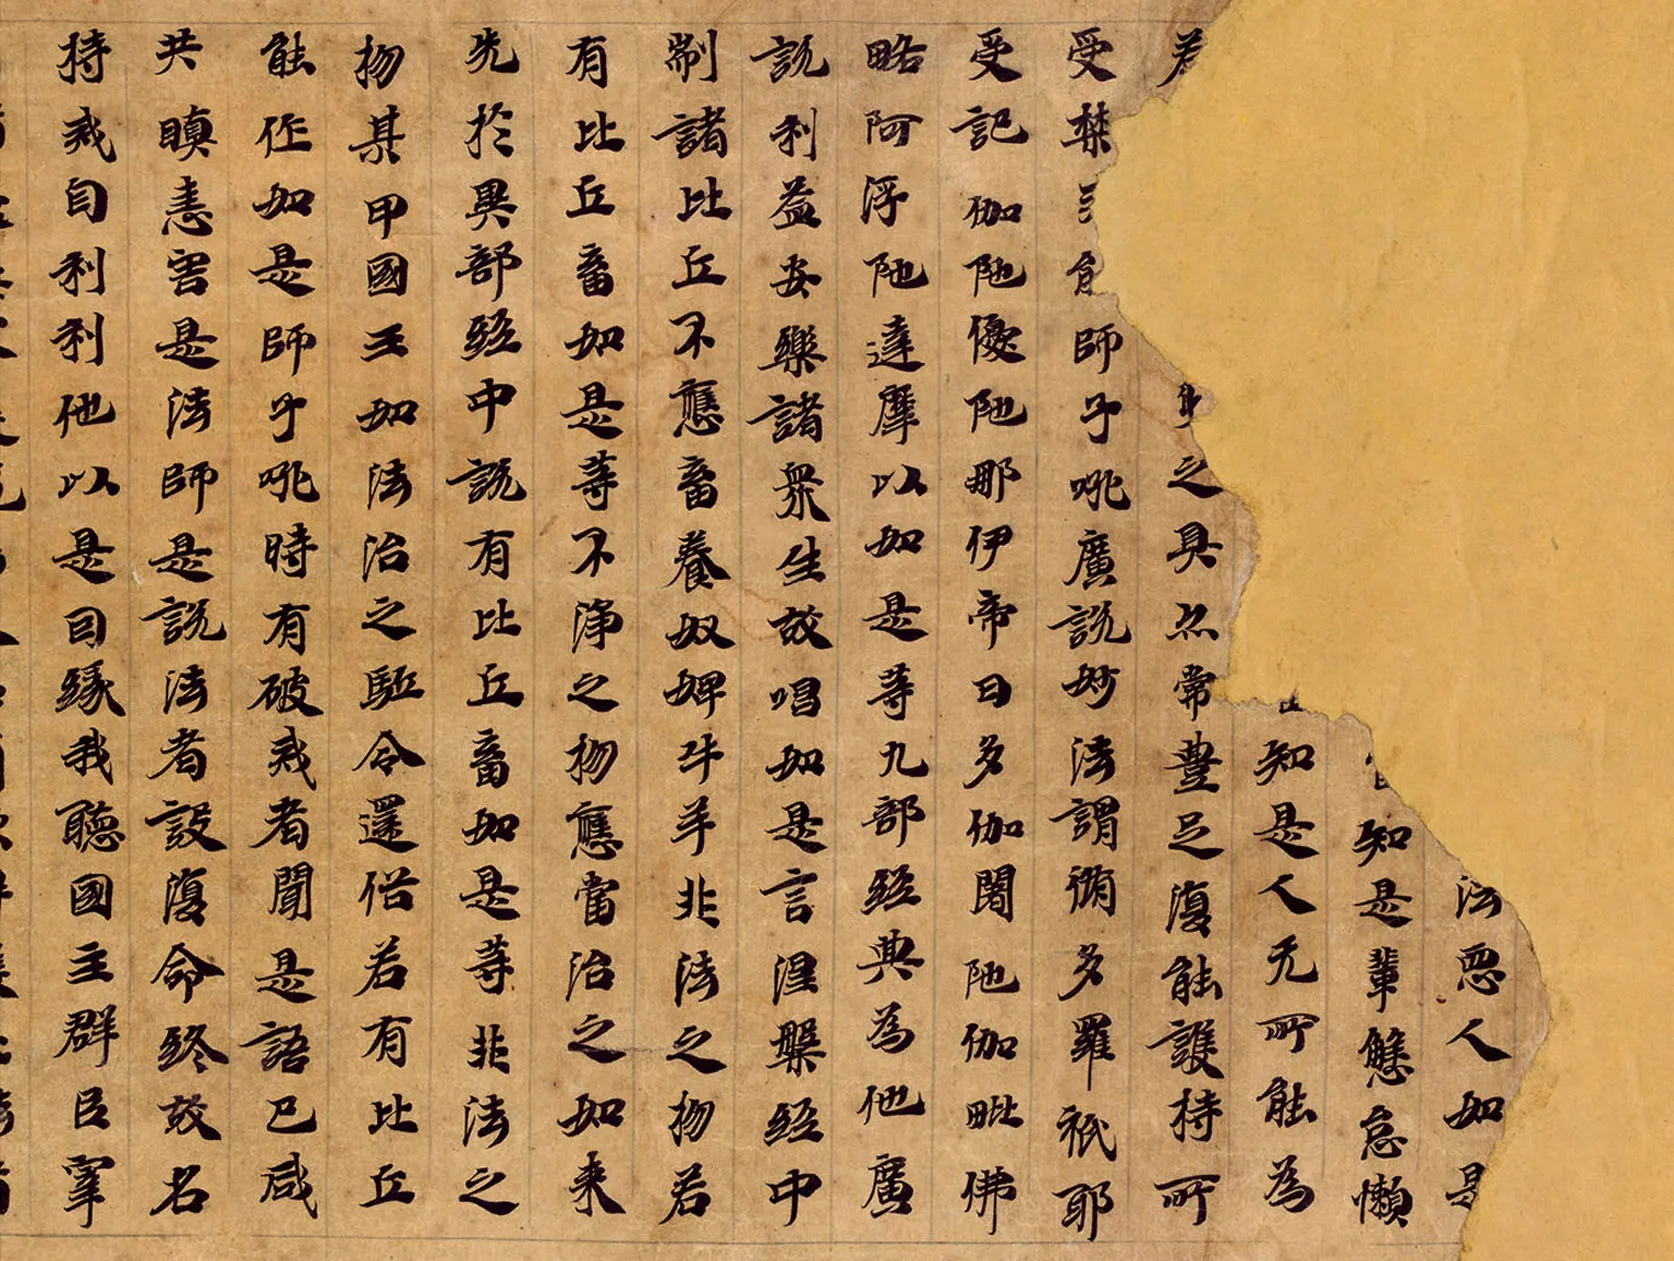 法惡人如是
知是輩懈怠懶
知是人无所能為
之具亦常豐足復能護持所
受禁能師子吼廣說妙法謂脩多羅祇耶
受記伽陁優陁那伊帝曰多伽闍陁伽毗佛
略阿浮陁達摩以如是等九部經典為他廣
說利益安樂諸衆生故唱如是言涅槃經中
制諸比丘不應畜養奴婢牛羊非法之物若
有比丘畜如是等不淨之物應當治之如来
先於異部經中說有比丘畜如是等非法之
物某甲國王如法治之駈令還俗若有比丘
能作如是師子吼時有破戒者聞是語已咸
共瞋恚害是法師是說法者設復命終故名
持戒自利利他以是因緣我聽國主群臣宰